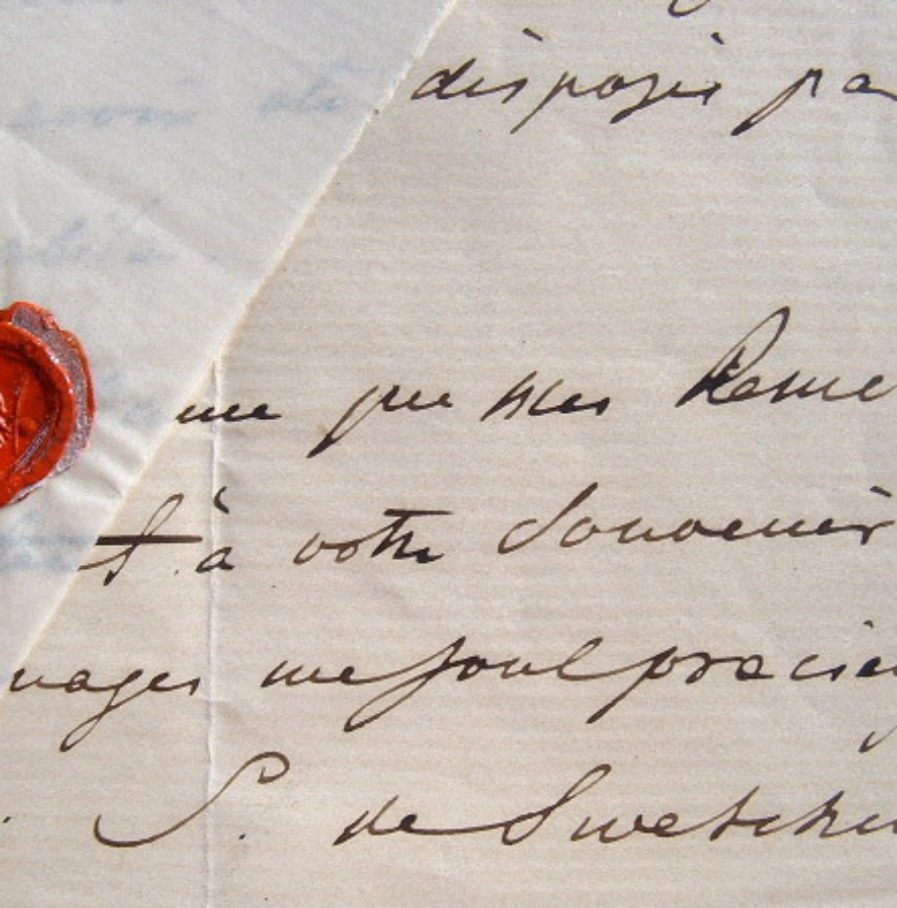 disposée pa
me que mes Reme
à votre Souvenir
nages me sont précieu
S. de Swetchi